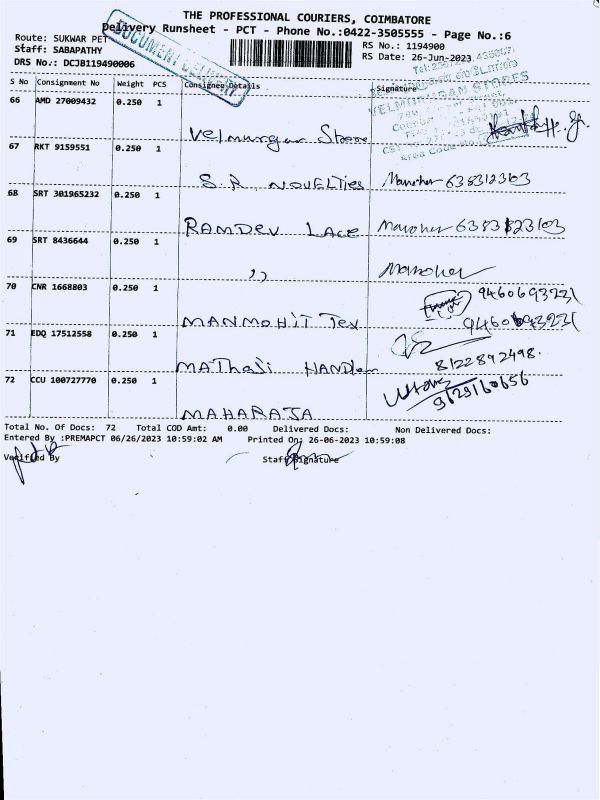 THE PROFESSIONAL COURIERS, COIMBATORE
Delivery Runsheet - PCT - Phone No.:0422-3505555 - Page No.:6
Route: SUKWAR PET
RS No.: 1194900
Staff: SABAPATHY
RS Date: 26-Jun-2023
DRS No.: DCJB119490006
DOCUMENT
S No Consignment No Weight PCS Consignee Details Signature
66 AMD 27009432 0.250 1
Velmurgan Store
67 RKT 9159551 0.250 1
S.R. NOVELTIES Manoher 638312303
68 SRT 301965232 0.250 1
RAMDEV LACE Manoher
69 SRT 8436644 0.250 1
,, Manoher
70 CNR 1668803 0.250 1
MANMOHIT Tex
71 EDQ 17512558 0.250 1
MAThaJi 8122892498.
72 CCU 100727770 0.250 1
9629160656
MAHARAJA
Total No. Of Docs: 72 Total COD Amt: 0.00 Delivered Docs: Non Delivered Docs:
Entered By :PREMAPCT 06/26/2023 10:59:02 AM Printed On: 26-06-2023 10:59:08
Verified By Staff Signature